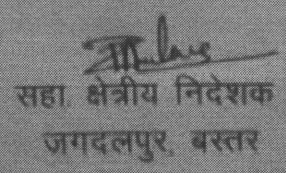 सहा. क्षेत्रीय निदेशक
जगदलपुर, बस्तर